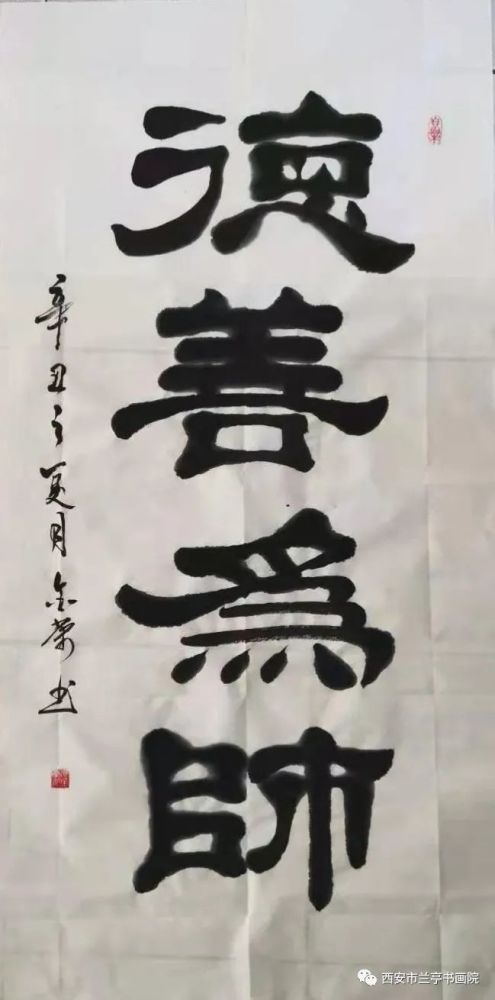 德善為師
辛丑之夏月金荣书
西安市兰亭书画院